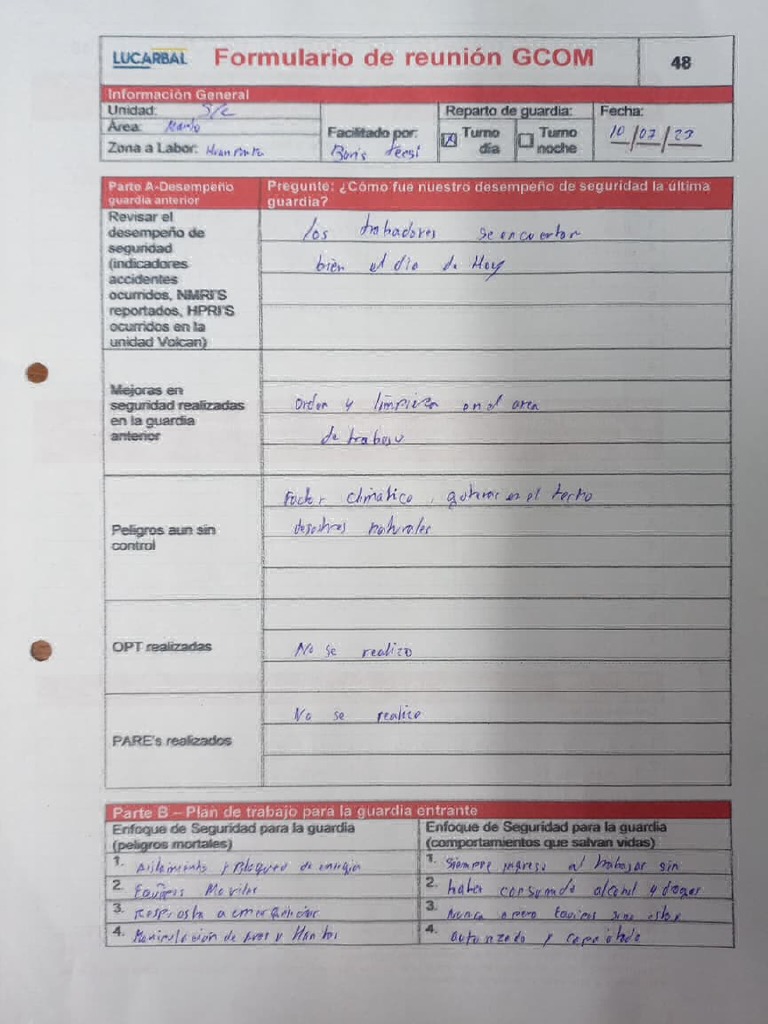 LUCARBAL Formulario de reunión GCOM 48
Información General
Unidad: S/c
Área: Manto
Zona a Labor:
Facilitado por:
Boris
Reparto de guardia:
Turno día
Turno noche
Fecha:
10/07/23
Parte A-Desempeño guardia anterior
Pregunte: ¿Cómo fue nuestro desempeño de seguridad la última guardia?
Revisar el
desempeño de
seguridad
(indicadores
accidentes
ocurridos, NMRI'S
reportados, HPRI'S
ocurridos en la
unidad Volcan)
los trabadores se encuentan
bien el dia de Hoy
Mejoras en
seguridad realizadas
en la guardia
anterior
Orden y limpieza en el area
de trabajo
Peligros aun sin
control
Factor climatico, goteras en el techo
desastres naturales
OPT realizadas
No se realizo
PARE's realizados
No se realizo
Parte B – Plan de trabajo para la guardia entrante
Enfoque de Seguridad para la guardia
(peligros mortales)
1. Aislamiento y Bloqueo de energia
2. Equipos Moviles
3. Respuesta a emergencias
4. Manipulación de
Enfoque de Seguridad para la guardia
(comportamientos que salvan vidas)
1. Siempre ingreso al trabajar sin
2. haber consumido alcohol y drogas
3. Nunca opero Equipos sino estoy
4. autorizado y capacitado